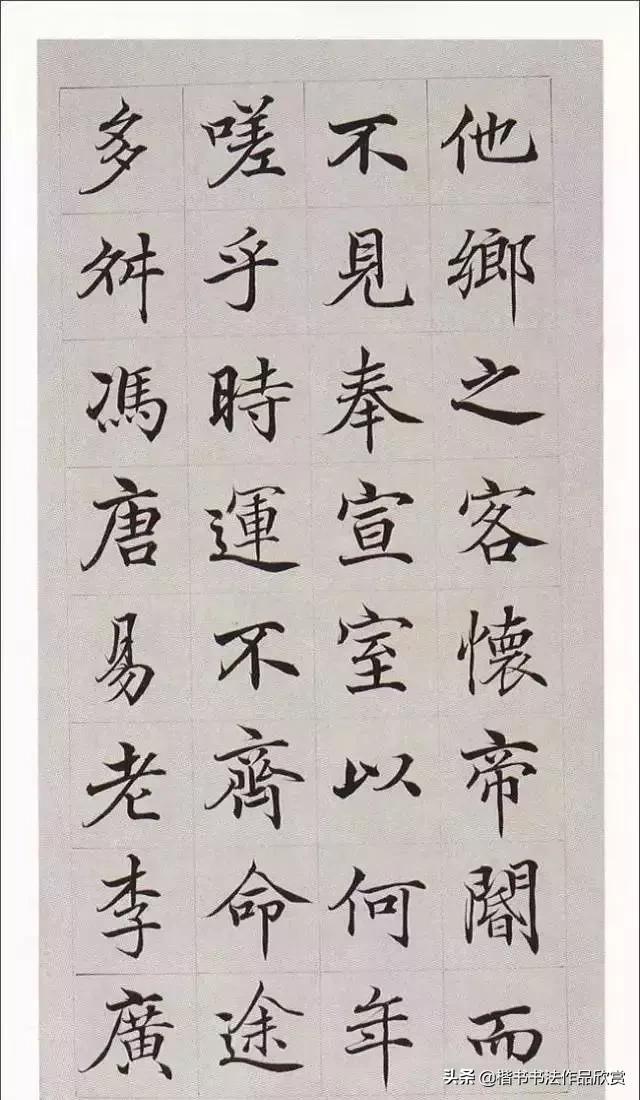 他鄉之客懷帝閽而
不見奉宣室以何年
嗟乎時運不齊命途
多舛馮唐易老李廣
头条 @楷书书法作品欣赏